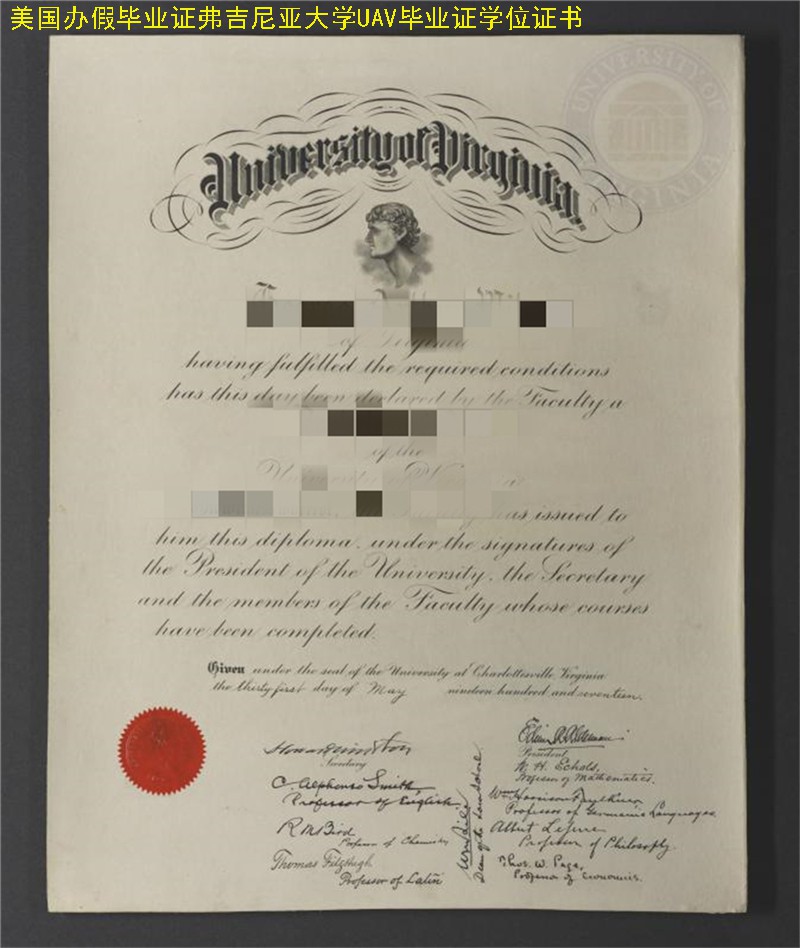 美国办假毕业证弗吉尼亚大学UAV毕业证学位证书
UNIVERSITY OF
VIRGINIA
University of Virginia
of Virginia
having fulfilled the required conditions
has this day been declared by the Faculty a
of the
University
as issued to
him this diploma, under the signatures of
the President of the University, the Secretary
and the members of the Faculty whose courses
have been completed.
Given under the seal of the University at Charlottesville, Virginia
the thirty first day of May nineteen hundred and seventeen.
Secretary
President
C. Alphonso Smith
Professor of English.
W. H. Echols,
Professor of Mathematics.
R M Bird
Professor of Chemistry
Professor of Germanic Languages
Thomas Fitzhugh
Professor of Latin
Professor of Philosophy.
Thos. W. Page,
Professor of Economics.